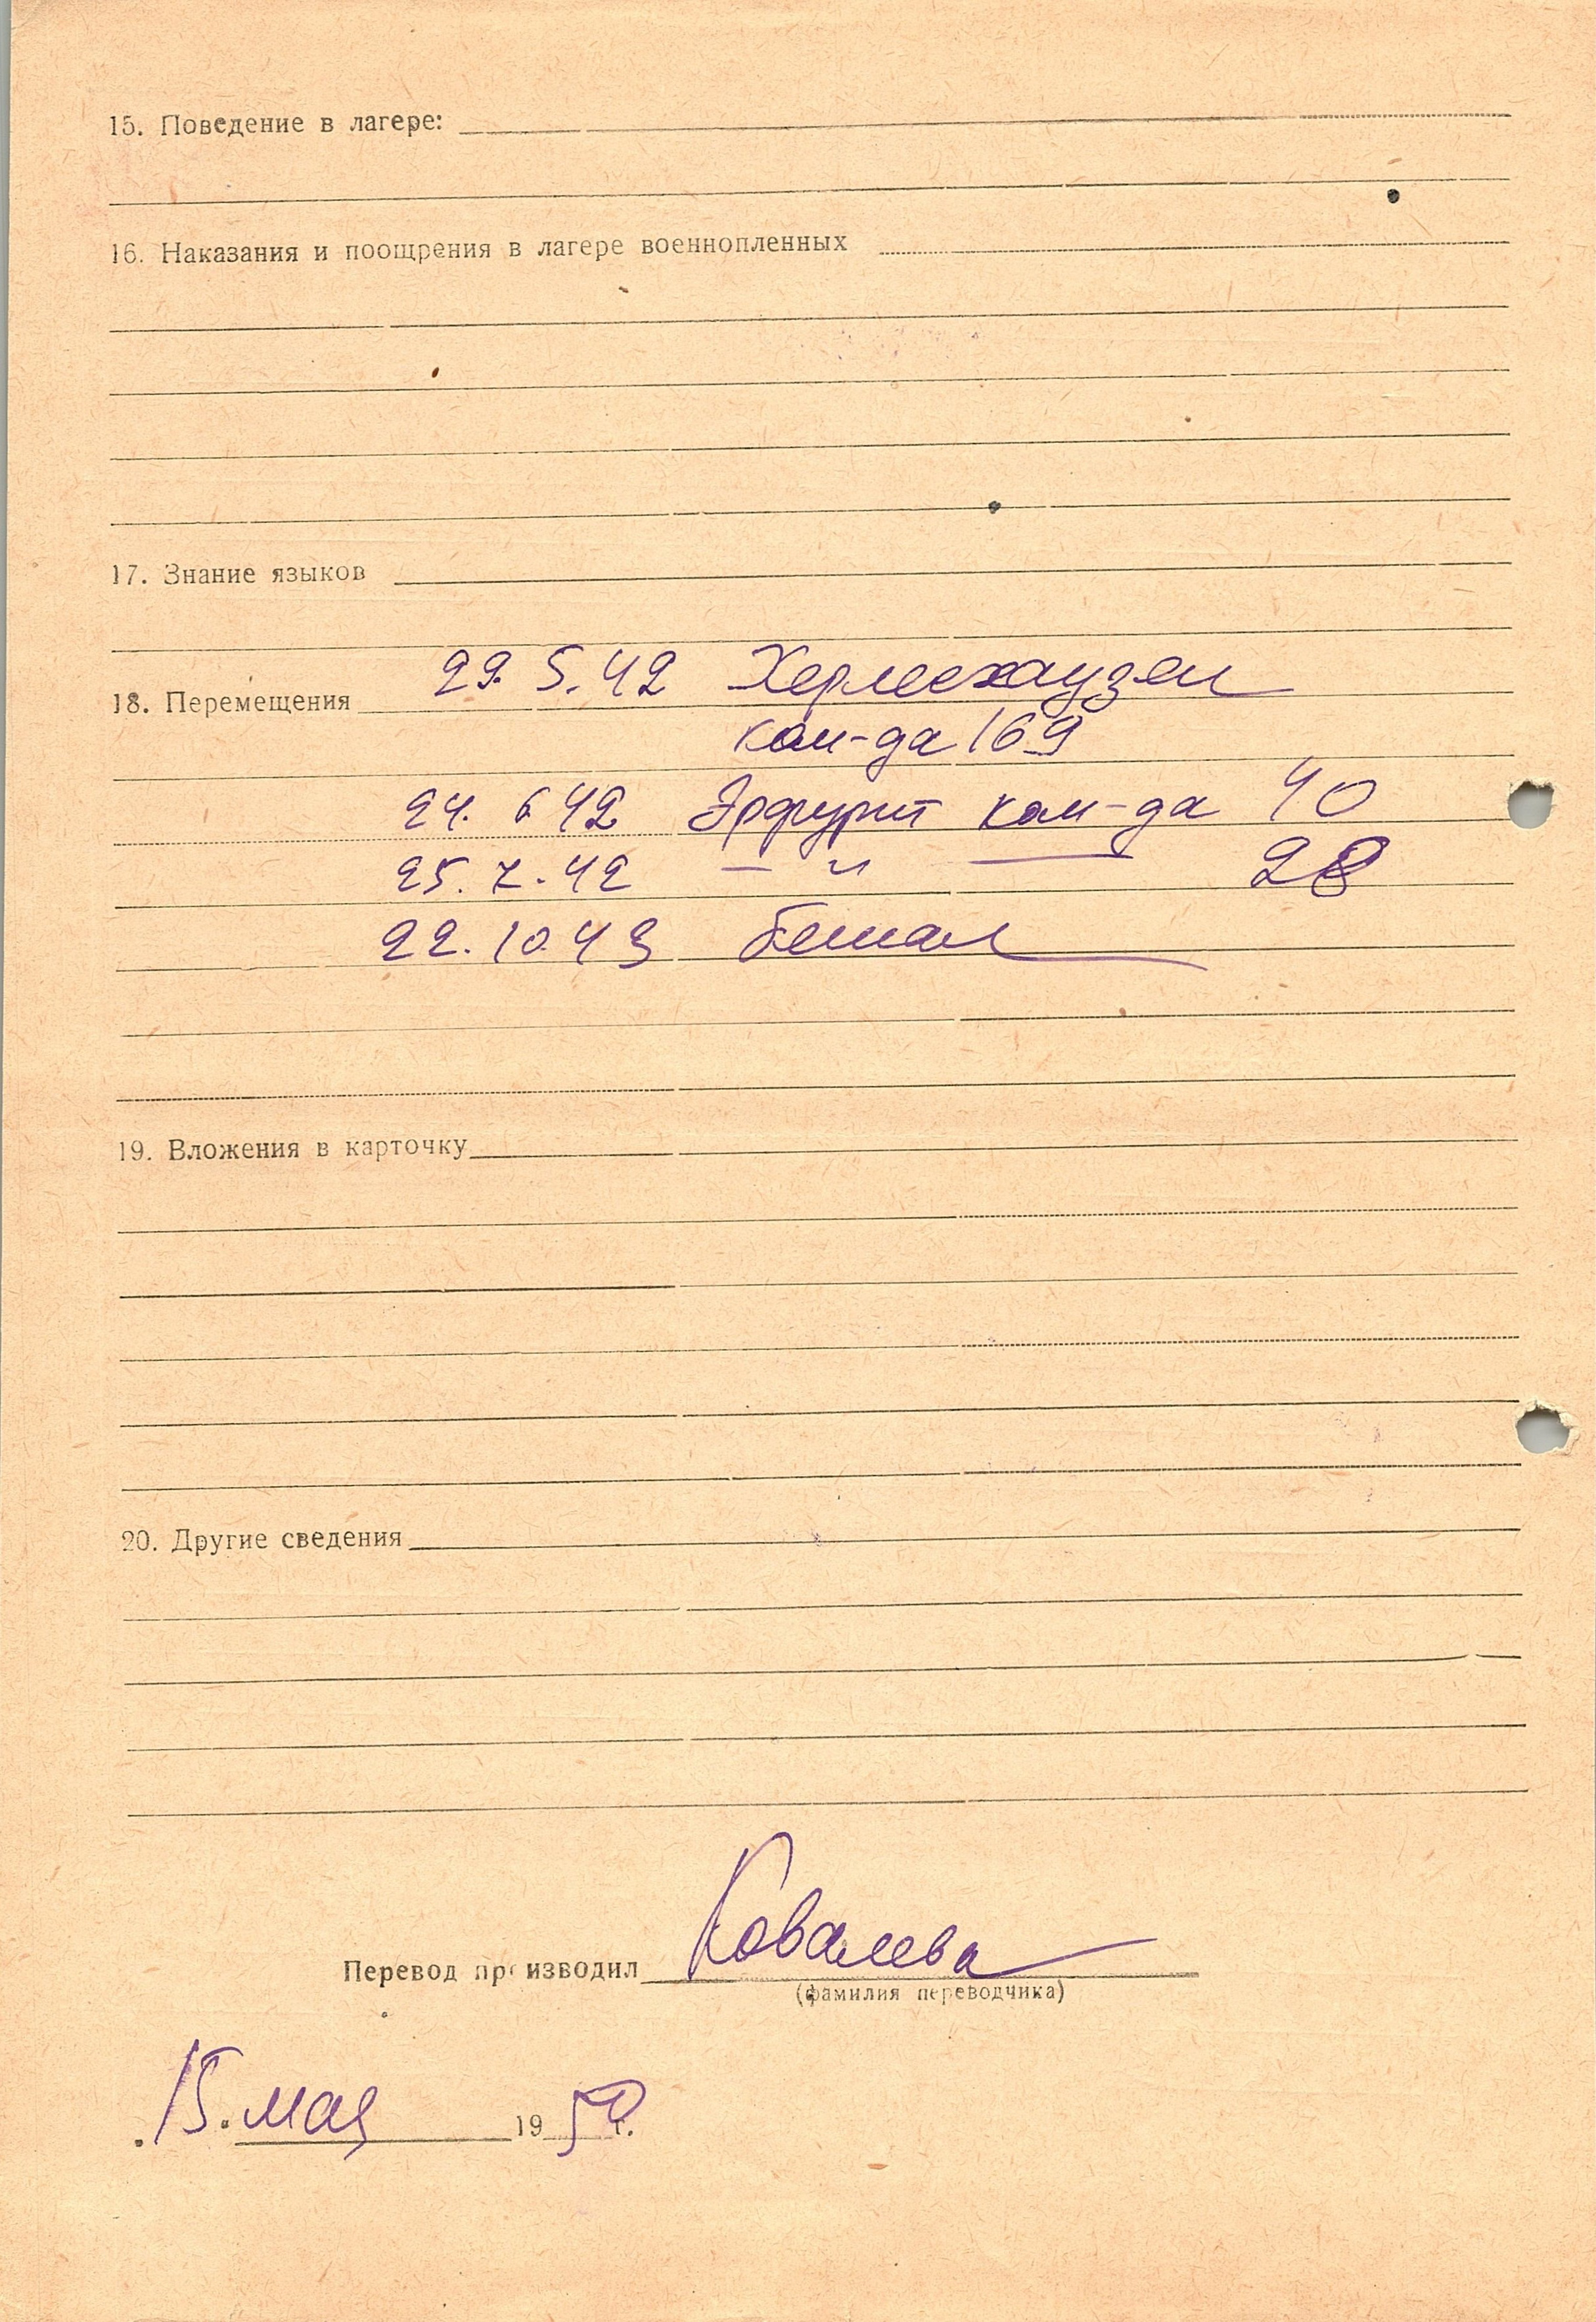 15. Поведение в лагере:
16. Наказания и поощрения в лагере военнопленных
17. Знание языков
18. Перемещения 29.5.42 Хермсхаузен
ком-да 169
24.6.42 Эрфурт ком-да 40
25.7.42 — " — 28
22.10.43 бежал
19. Вложения в карточку
20. Другие сведения
Перевод производил Ковалева
(фамилия переводчика)
15. мая 1950 г.